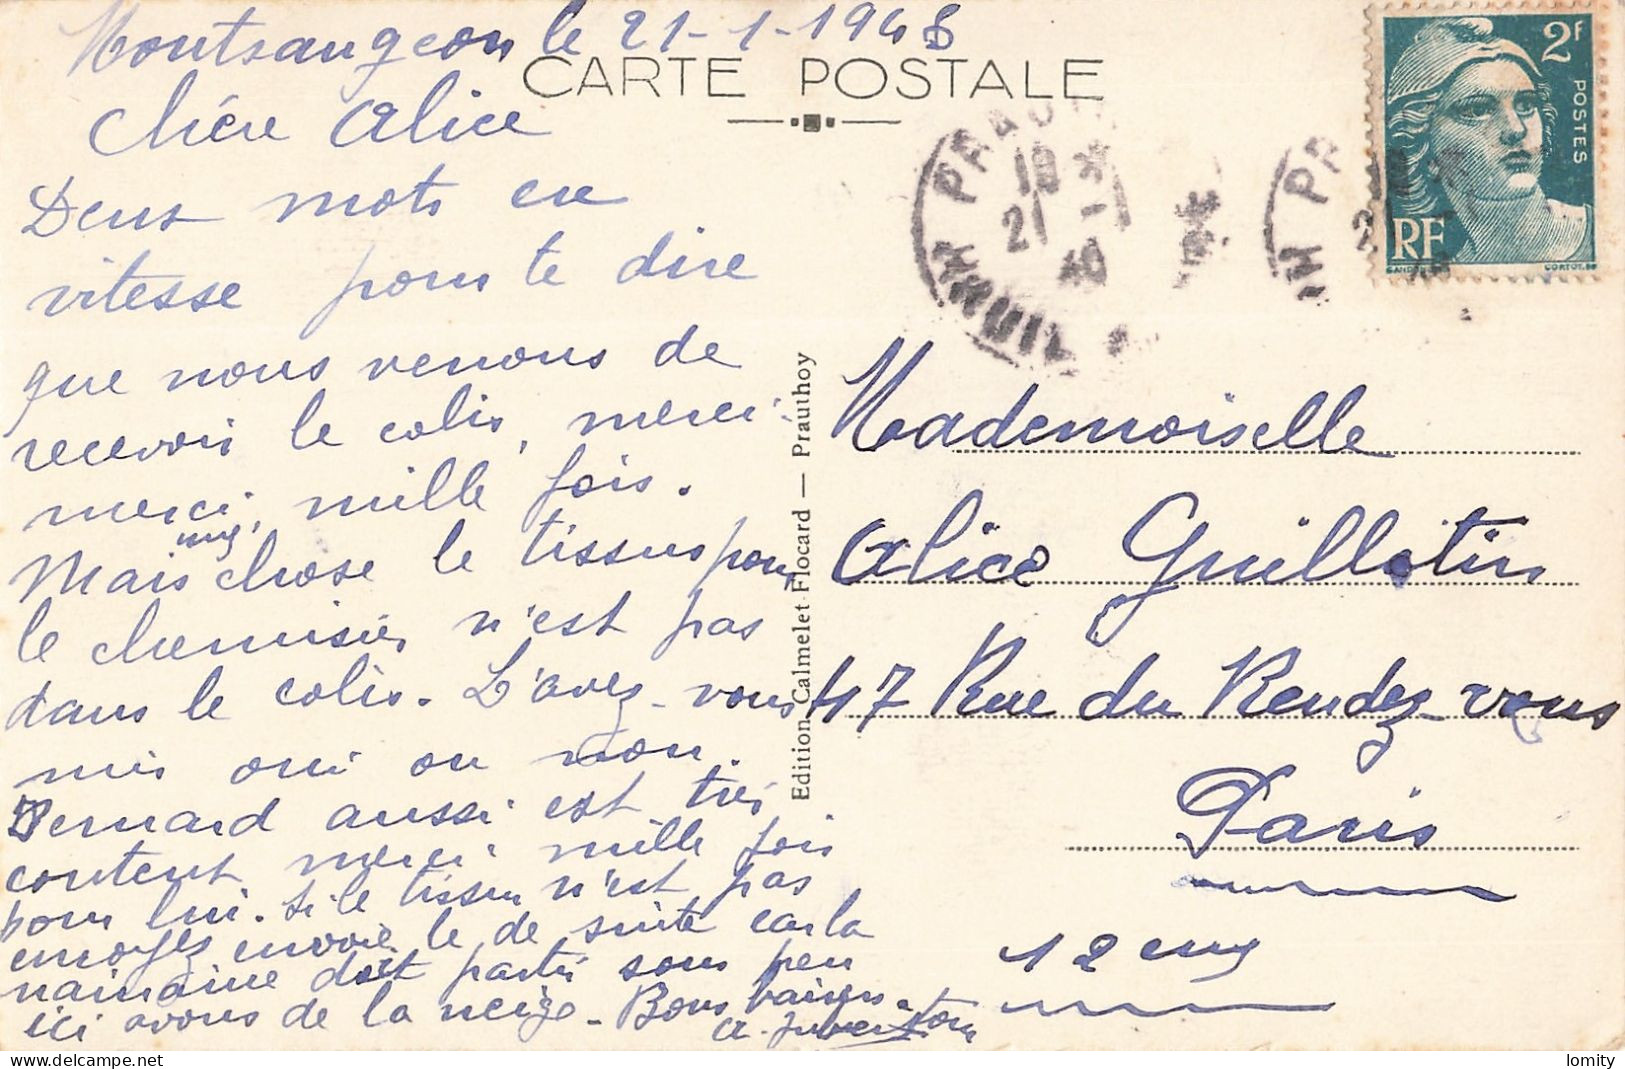 Montsaugeon le 21-1-1948
CARTE POSTALE
Chére Alice
Deux mots en
vitesse pour te dire
que nous venons de
recevoir le colis, merci-
merci, mille fois.
Mais une chose le tissus pour
le chemisier n'est pas
dans le colis. L'avez-vous
mis oui ou non.
Bernard aussi est très
content merci mille fois
pour lui. Si le tissu n'est pas
envoyez envoie le de suite car la
marraine doit partir sous peu
ici avons de la neige. Bons baisers
Edition Calmelet-Flocard — Prauthoy
2F
POSTES
RF
CORTOT
PRAUT
18
21 -1
Mademoiselle
Alice Guillotin
47 Rue du Rendez-vous
Paris
12 eme
lomity